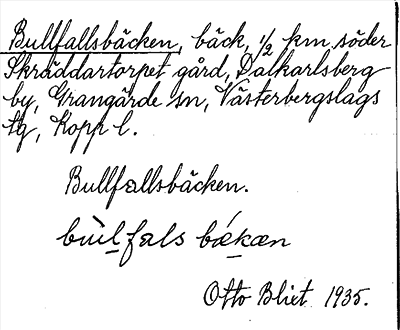 Bullfallsbäcken, bäck, 1/2 km söder
Skräddartorpet gård, Dalkarlsberg
by, Grangärde sn, Västerbergslags
tg, Kopp l.
Bullfallsbäcken.
bùl fals bækæn
Otto Blixt 1935.